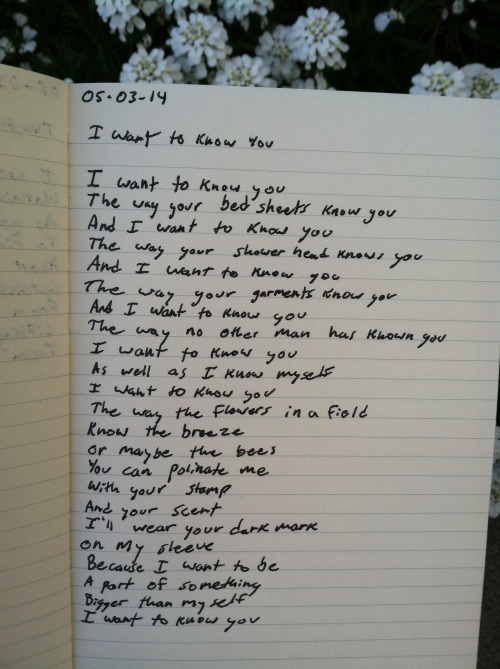 05-03-14
I want to know You
I want to know you
The way your bed sheets know you
And I want to know you
The way your shower head knows you
And I want to know you
The way your garments know you
And I want to know you
The way no other man has known you
I want to know you
As well as I know myself
I want to know you
The way the flowers in a field
Know the breeze
or maybe the bees
You can polinate me
With your stamp
And your scent
I'll wear your dark mark
on my sleeve
Because I want to be
A part of something
Bigger than my self
I want to know you